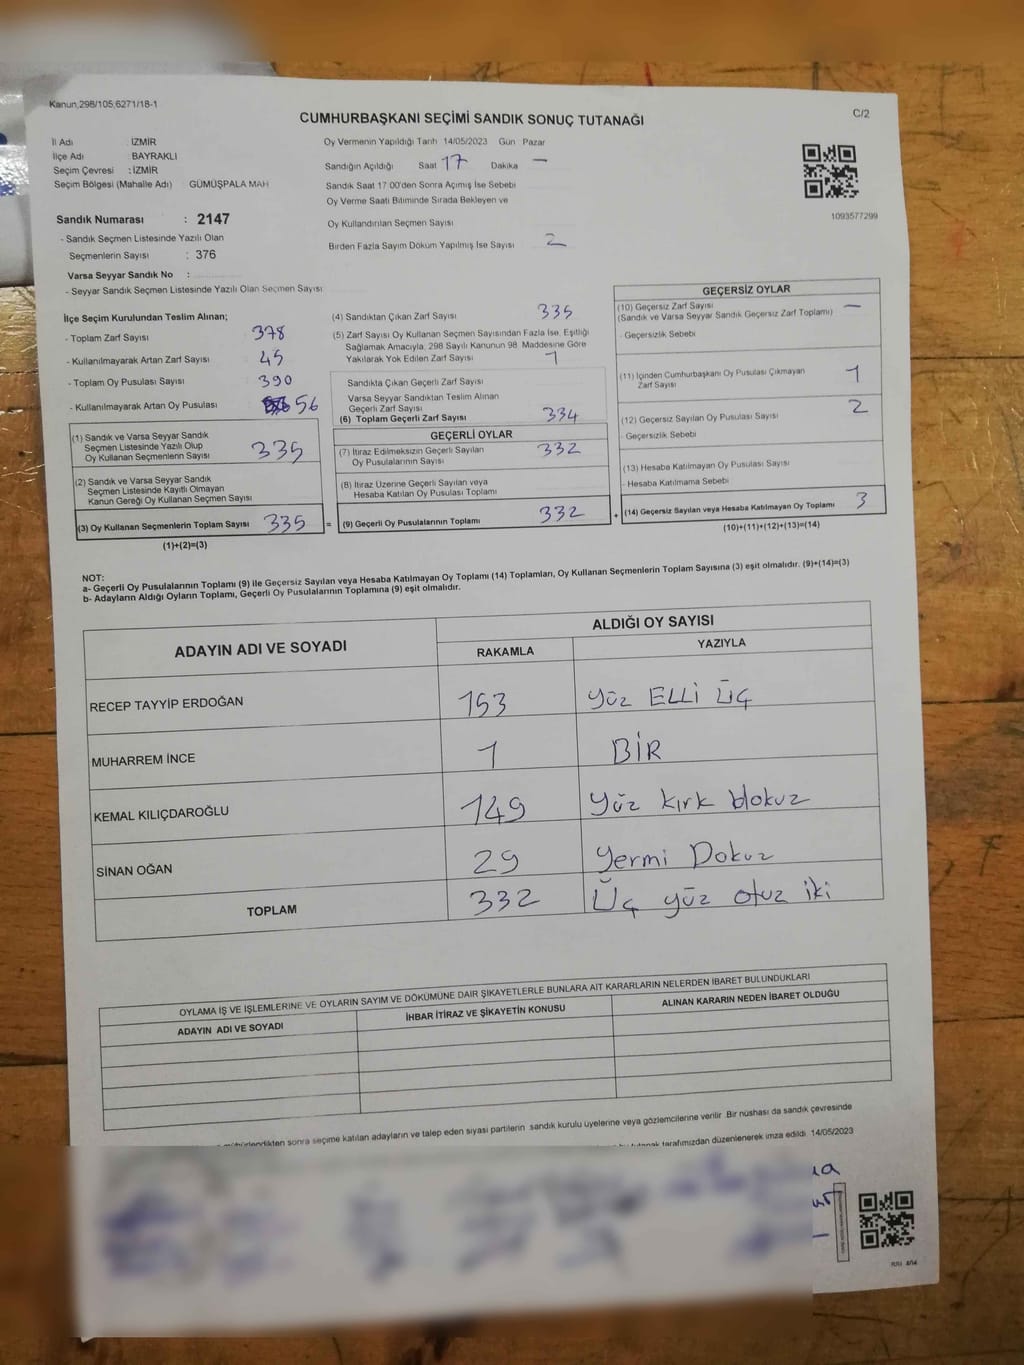 Kanun,298/105,6271/18-1
CUMHURBAŞKANI SEÇİMİ SANDIK SONUÇ TUTANAĞI
C/2
İl Adı : İZMİR
İlçe Adı : BAYRAKLI
Seçim Çevresi : İZMİR
Seçim Bölgesi (Mahalle Adı) GÜMÜŞPALA MAH
Sandık Numarası : 2147
- Sandık Seçmen Listesinde Yazılı Olan
Seçmenlerin Sayısı : 376
Varsa Seyyar Sandık No :
- Seyyar Sandık Seçmen Listesinde Yazılı Olan Seçmen Sayısı
Oy Vermenin Yapıldığı Tarih 14/05/2023 Gün Pazar
Sandığın Açıldığı Saat 17 Dakika —
Sandık Saat 17 00'den Sonra Açımış İse Sebebi
Oy Verme Saati Bitiminde Sırada Bekleyen ve
Oy Kullandırılan Seçmen Sayısı
Birden Fazla Sayım Döküm Yapılmış İse Sayısı 2
1093577299
İlçe Seçim Kurulundan Teslim Alınan;
- Toplam Zarf Sayısı 378
- Kullanılmayarak Artan Zarf Sayısı 45
- Toplam Oy Pusulası Sayısı 390
- Kullanılmayarak Artan Oy Pusulası 56
(1) Sandık ve Varsa Seyyar Sandık
Seçmen Listesinde Yazılı Olup
Oy Kullanan Seçmenlerin Sayısı 335
(2) Sandık ve Varsa Seyyar Sandık
Seçmen Listesinde Kayıtlı Olmayan
Kanun Gereği Oy Kullanan Seçmen Sayısı
(3) Oy Kullanan Seçmenlerin Toplam Sayısı 335 =
(1)+(2)=(3)
(4) Sandıktan Çıkan Zarf Sayısı 335
(5) Zarf Sayısı Oy Kullanan Seçmen Sayısından Fazla İse, Eşitliği
Sağlamak Amacıyla, 298 Sayılı Kanunun 98. Maddesine Göre
Yakılarak Yok Edilen Zarf Sayısı 1
Sandıkta Çıkan Geçerli Zarf Sayısı
Varsa Seyyar Sandıktan Teslim Alınan
Geçerli Zarf Sayısı
(6) Toplam Geçerli Zarf Sayısı 334
GEÇERLİ OYLAR
(7) İtiraz Edilmeksizin Geçerli Sayılan
Oy Pusulalarının Sayısı 332
(8) İtiraz Üzerine Geçerli Sayılan veya
Hesaba Katılan Oy Pusulası Toplamı
(9) Geçerli Oy Pusulalarının Toplamı 332 +
GEÇERSİZ OYLAR
(10) Geçersiz Zarf Sayısı —
(Sandık ve Varsa Seyyar Sandık Geçersiz Zarf Toplamı)
- Geçersizlik Sebebi
(11) İçinden Cumhurbaşkanı Oy Pusulası Çıkmayan
Zarf Sayısı 1
(12) Geçersiz Sayılan Oy Pusulası Sayısı 2
- Geçersizlik Sebebi
(13) Hesaba Katılmayan Oy Pusulası Sayısı
- Hesaba Katılmama Sebebi
(14) Geçersiz Sayılan veya Hesaba Katılmayan Oy Toplamı 3
(10)+(11)+(12)+(13)=(14)
NOT:
a- Geçerli Oy Pusulalarının Toplamı (9) ile Geçersiz Sayılan veya Hesaba Katılmayan Oy Toplamı (14) Toplamları, Oy Kullanan Seçmenlerin Toplam Sayısına (3) eşit olmalıdır. (9)+(14)=(3)
b- Adayların Aldığı Oyların Toplamı, Geçerli Oy Pusulalarının Toplamına (9) eşit olmalıdır.
ADAYIN ADI VE SOYADI
ALDIĞI OY SAYISI
RAKAMLA YAZIYLA
RECEP TAYYİP ERDOĞAN 153 Yüz ELLİ ÜÇ
MUHARREM İNCE 1 BİR
KEMAL KILIÇDAROĞLU 149 Yüz kırk dokuz
SİNAN OĞAN 29 Yermi Dokuz
TOPLAM 332 Üç yüz otuz iki
OYLAMA İŞ VE İŞLEMLERİNE VE OYLARIN SAYIM VE DÖKÜMÜNE DAİR ŞİKAYETLERLE BUNLARA AİT KARARLARIN NELERDEN İBARET BULUNDUKLARI
ADAYIN ADI VE SOYADI İHBAR İTİRAZ VE ŞİKAYETİN KONUSU ALINAN KARARIN NEDEN İBARET OLDUĞU
mühürlendikten sonra seçime katılan adayların ve talep eden siyasi partilerin sandık kurulu üyelerine veya gözlemcilerine verilir Bir nüshası da sandık çevresinde
tutanak tarafımızdan düzenlenerek imza edildi 14/05/2023